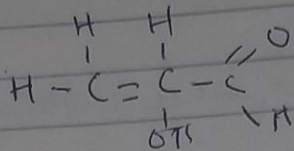 H H
H - C = C - C = O
OTS
H